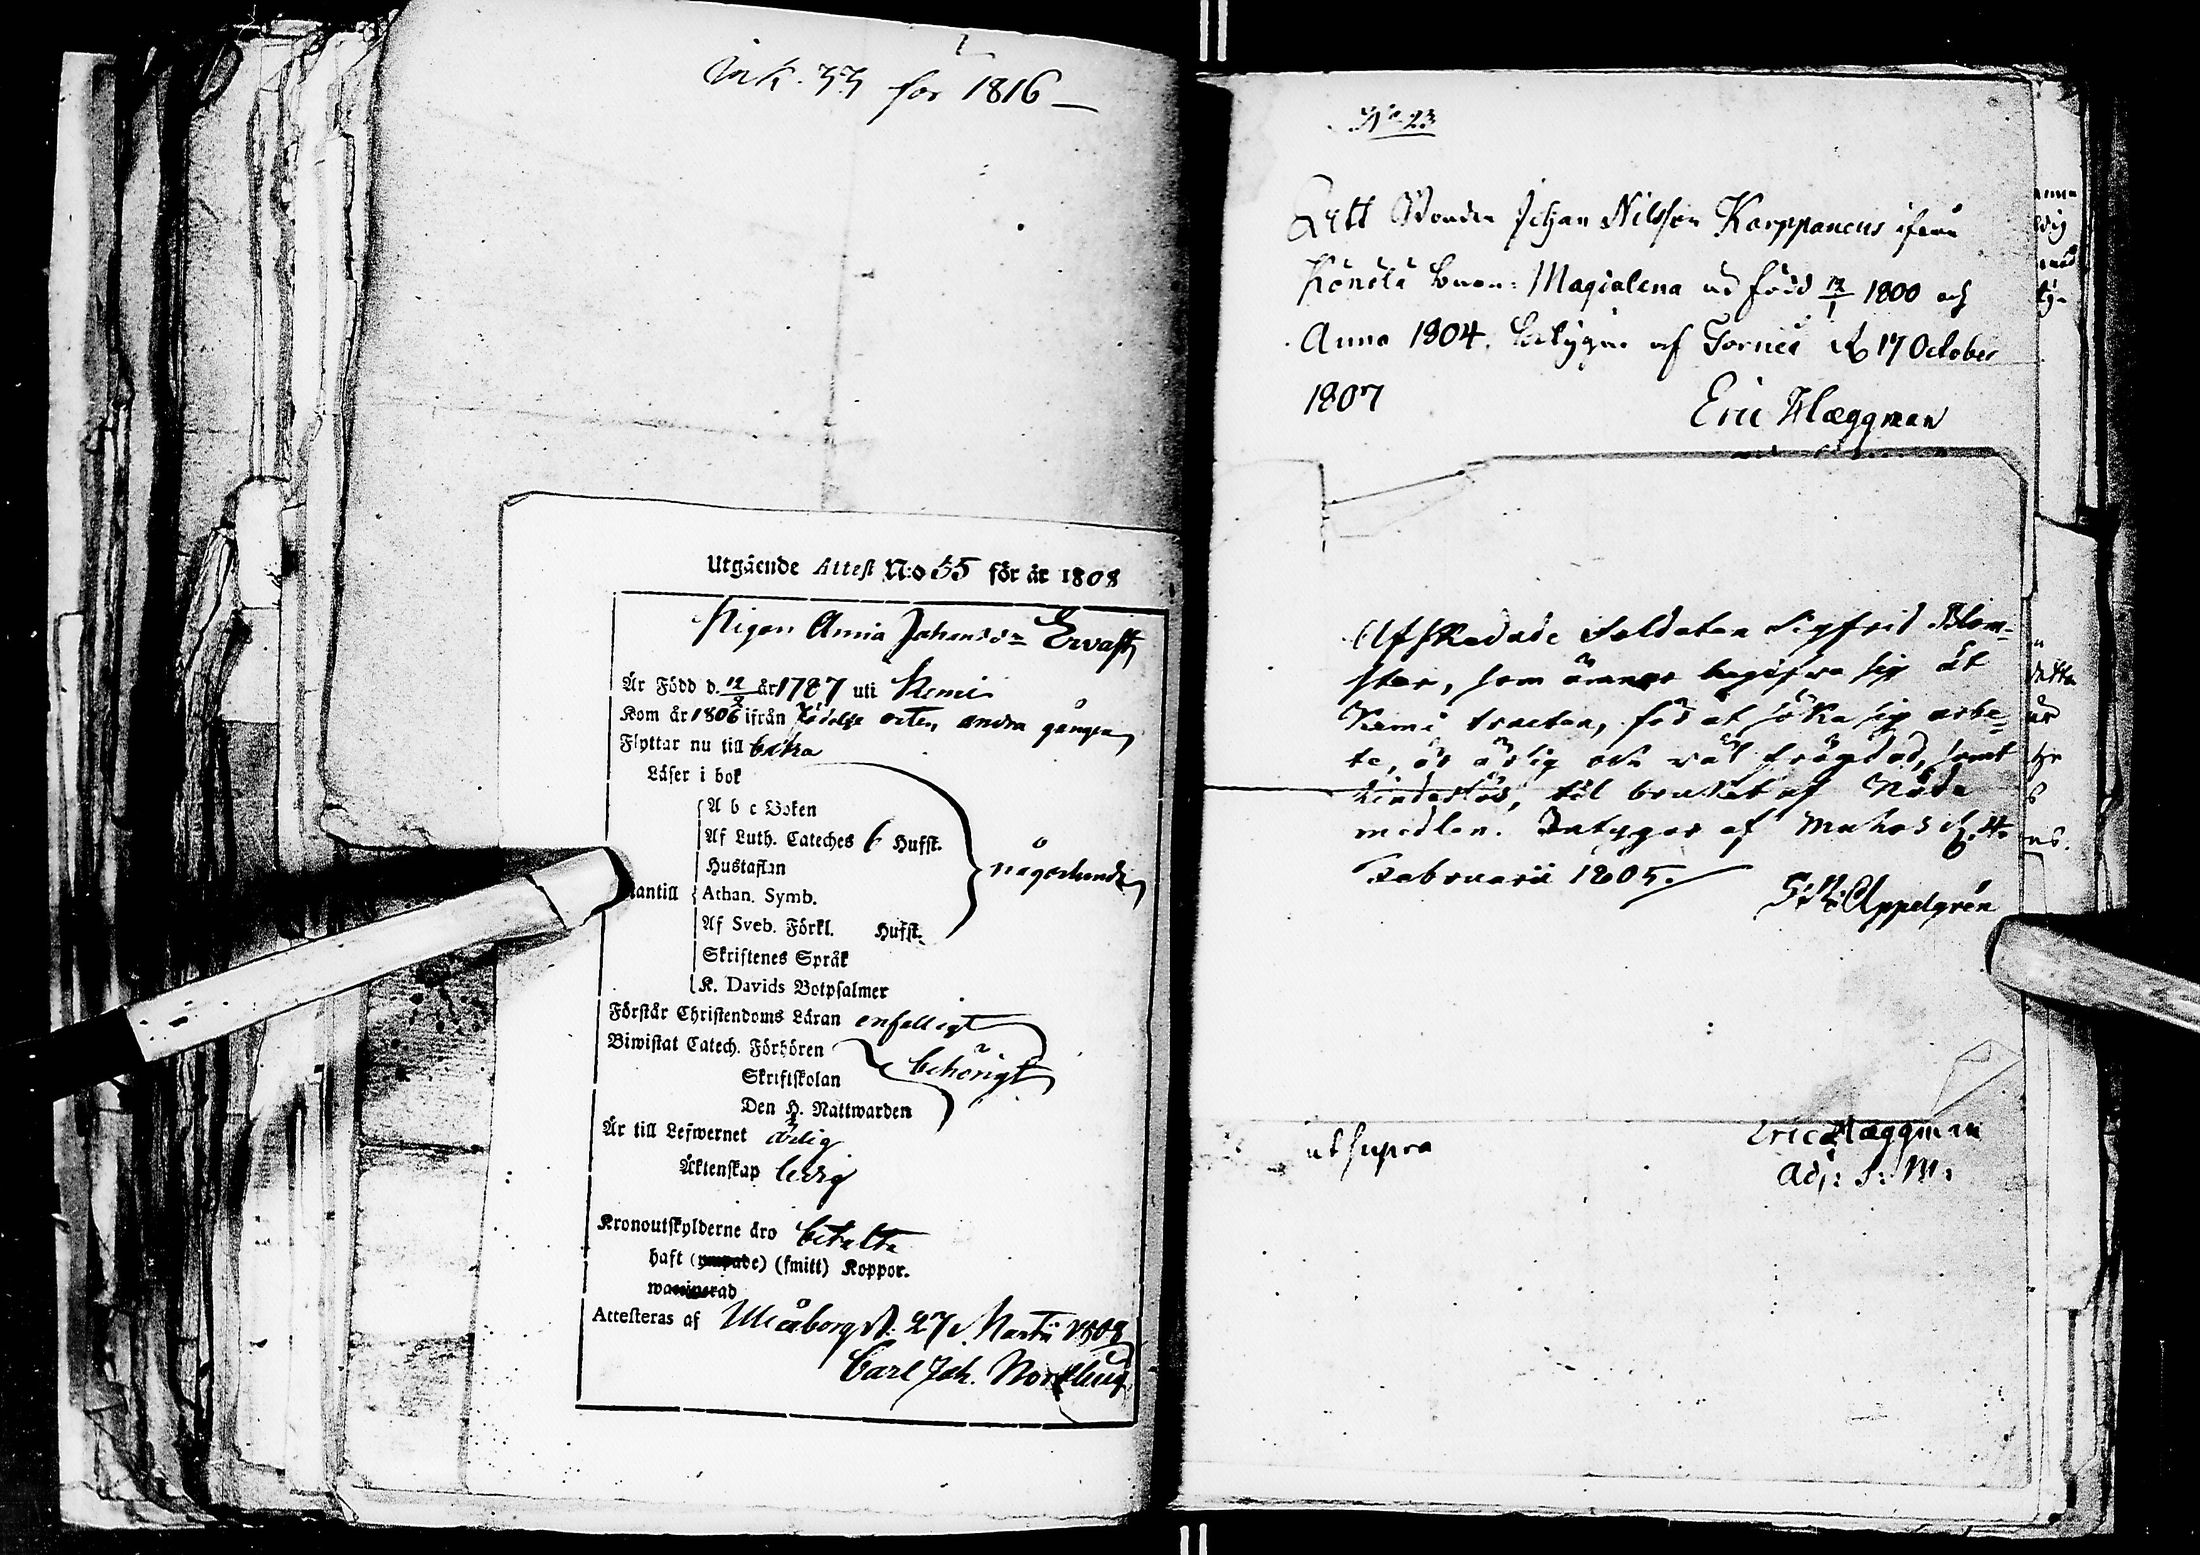 ink. 33 för 1816
Utgående Attest N:o 55 för år 1808
Pigan Anna Johansdr Ervast
Är Född d. 12/2 år 1787 uti Kemi
Kom år 1806 ifrån Födelse orten, andra gången
Flyttar nu till
Läser i bok
A b c Boken
Af Luth. Cateches 6 Hufst.
Hustaflan
någorlunda
antill Athan. Symb.
Af Sveb. Förkl. Hufst.
Skriftenes Språk
K. Davids Botpsalmer
Förstår Christendoms Läran enfalligt
Biwistat Catech. Förhören
behörigt
Skriftskolan
Den H. Nattwarden
Är till Lefwernet ärlig
Äktenskap ledig
Kronoutskylderne äro betalta
haft (ympade) (smitt) Koppor.
waccinerad
Attesteras af Uleåborg d. 27 Martii 1808
Carl Joh. Nordlund
No 23
Att Bonden Johan Nilsson Karppaneus ifrån
Magdalena är född 12/1 1800 och
Anno 1804, betygar af Torneå d. 17 October
1807
Eric Hæggman
Afskedade Soldaten Sigfrid Blom-
ster, som ämnar begifva sig åt
Kemi tracten, för at söka sig arbe-
te, är ärlig och väl frägdad, samt
hinderlös, till bruket af Nåde
medlen. Intygar af Muhos d. 4.
Februarii 1805.
Appelgrén
ut supra
Eric Hæggman
Adj: S: M: